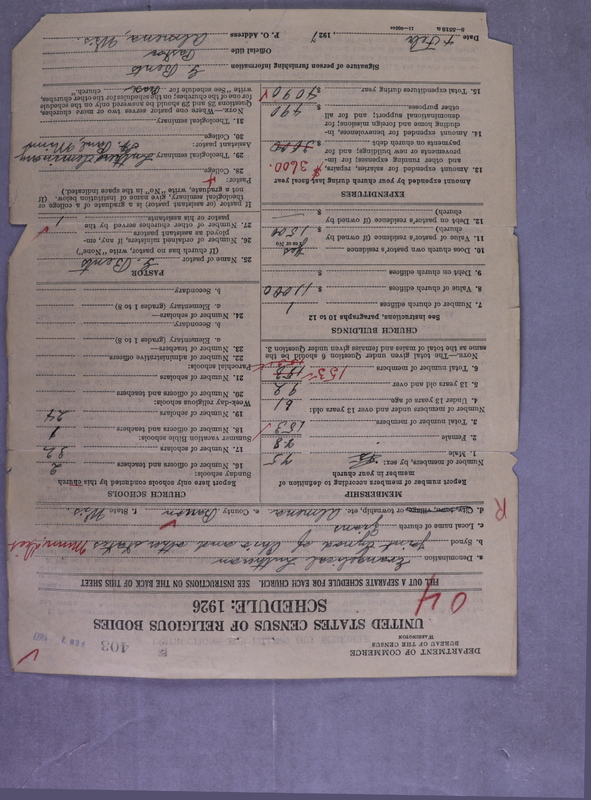 DEPARTMENT OF COMMERCE
BUREAU OF THE CENSUS
WASHINGTON
403
FEB 7 1927
UNITED STATES CENSUS OF RELIGIOUS BODIES
SCHEDULE: 1926
04
FILL OUT A SEPARATE SCHEDULE FOR EACH CHURCH. SEE INSTRUCTIONS ON THE BACK OF THIS SHEET
a. Denomination Evangelical Lutheran
b. Synod Joint Synod of Ohio and other states
c. Local name of church
d. City, town, village, or township, etc. Almena e. County Barron f. State Wis.
R
MEMBERSHIP
Report number of members according to definition of member in your church
Number of members, by sex:
1. Male 75
2. Female 78
3. Total number of members 153
Number of members under and over 13 years old:
4. Under 13 years of age 61
5. 13 years old and over 92
6. Total number of members 153
153
NOTE.—The total given under Question 6 should be the same as the total of males and females given under Question 3.
CHURCH BUILDINGS
See instructions, paragraphs 10 to 12
7. Number of church edifices 1
8. Value of church edifices $ 11000
9. Debt on church edifices $
10. Does church own pastor's residence Yes
(Yes or No)
11. Value of pastor's residence (if owned by church) $ 1500
12. Debt on pastor's residence (if owned by church) $
EXPENDITURES
Amount expended by your church during last fiscal year
13. Amount expended for salaries, repairs, and other running expenses; for improvements or new building; and for payments on church debt $ 3600
$ 3600.
14. Amount expended for benevolences, including home and foreign missions; for denominational support; and for all other purposes $ 490
15. Total expenditures during year $ 4090
CHURCH SCHOOLS
Report here only schools conducted by this church
Sunday schools:
16. Number of officers and teachers 2
17. Number of scholars 32
Summer vacation Bible schools:
18. Number of officers and teachers 1
19. Number of scholars 24
Week-day religious schools:
20. Number of officers and teachers
21. Number of scholars
Parochial schools:
22. Number of administrative officers
23. Number of teachers—
a. Elementary (grades 1 to 8)
b. Secondary
24. Number of scholars—
a. Elementary (grades 1 to 8)
b. Secondary
PASTOR
25. Name of pastor
(If church has no pastor, write "None")
26. Number of ordained ministers, if any, employed as assistant pastors
27. Number of other churches served by the pastor or his assistants 1
If pastor (or assistant pastor) is a graduate of college or theological seminary, give name of institution below. (If not a graduate, write "No" in the space indicated.)
Pastor:
28. College
29. Theological seminary Luther Seminary St. Paul, Minn
Assistant pastor:
30. College
31. Theological seminary
NOTE.—Where one pastor serves two or more churches, Questions 25 and 29 should be answered only on the schedule for one of the churches; on the schedules for the other churches, write "See schedule for church."
Signature of person furnishing information
Official title Pastor
P. O. Address Almena, Wis.
Date 4 Feb , 1927